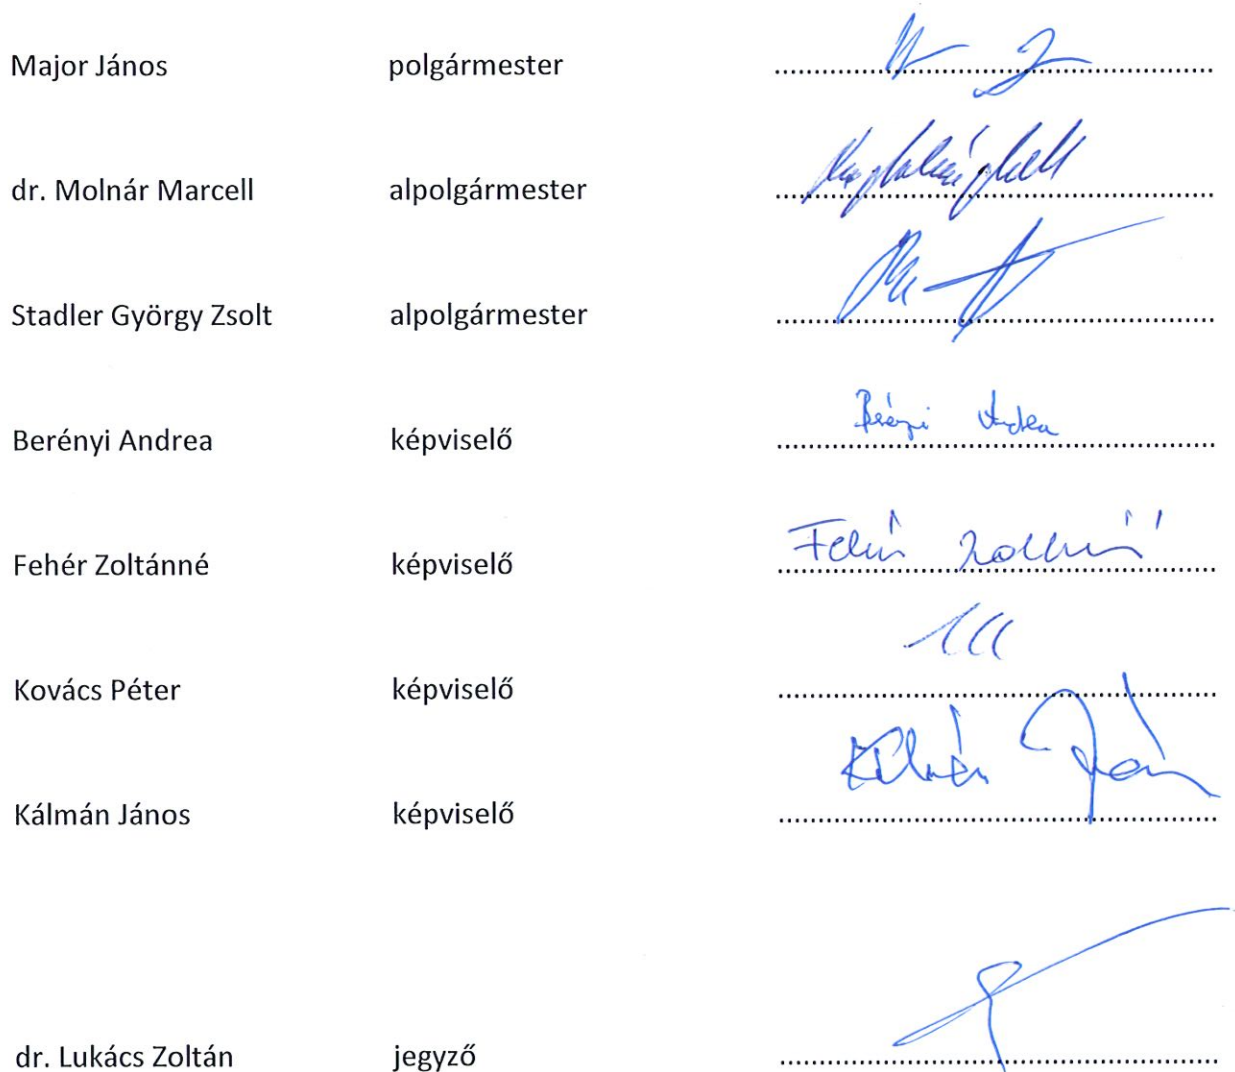 Major János polgármester
dr. Molnár Marcell alpolgármester
Stadler György Zsolt alpolgármester
Berényi Andrea képviselő Berényi Andrea
Fehér Zoltánné képviselő Fehér Zoltánné
Kovács Péter képviselő
Kálmán János képviselő Kálmán János
dr. Lukács Zoltán jegyző